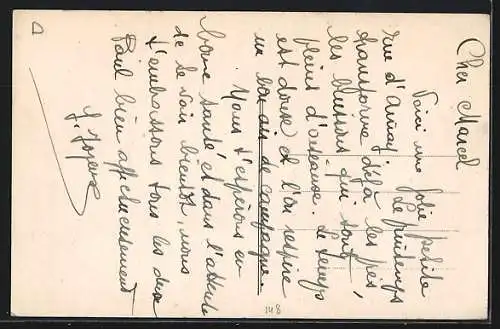 Cher Marcel
Voici une jolie petite
vue d'Auray. Le printemps
transforme déjà les prés,
les buissons qui sont
pleins d'oiseaux. Le temps
est doux et l'on respire
un bon air de campagne.
Nous t'espérons en
bonne santé et dans l'attente
de te voir bientôt, nous
t'embrassons tous les deux
Paul bien affectueusement
148